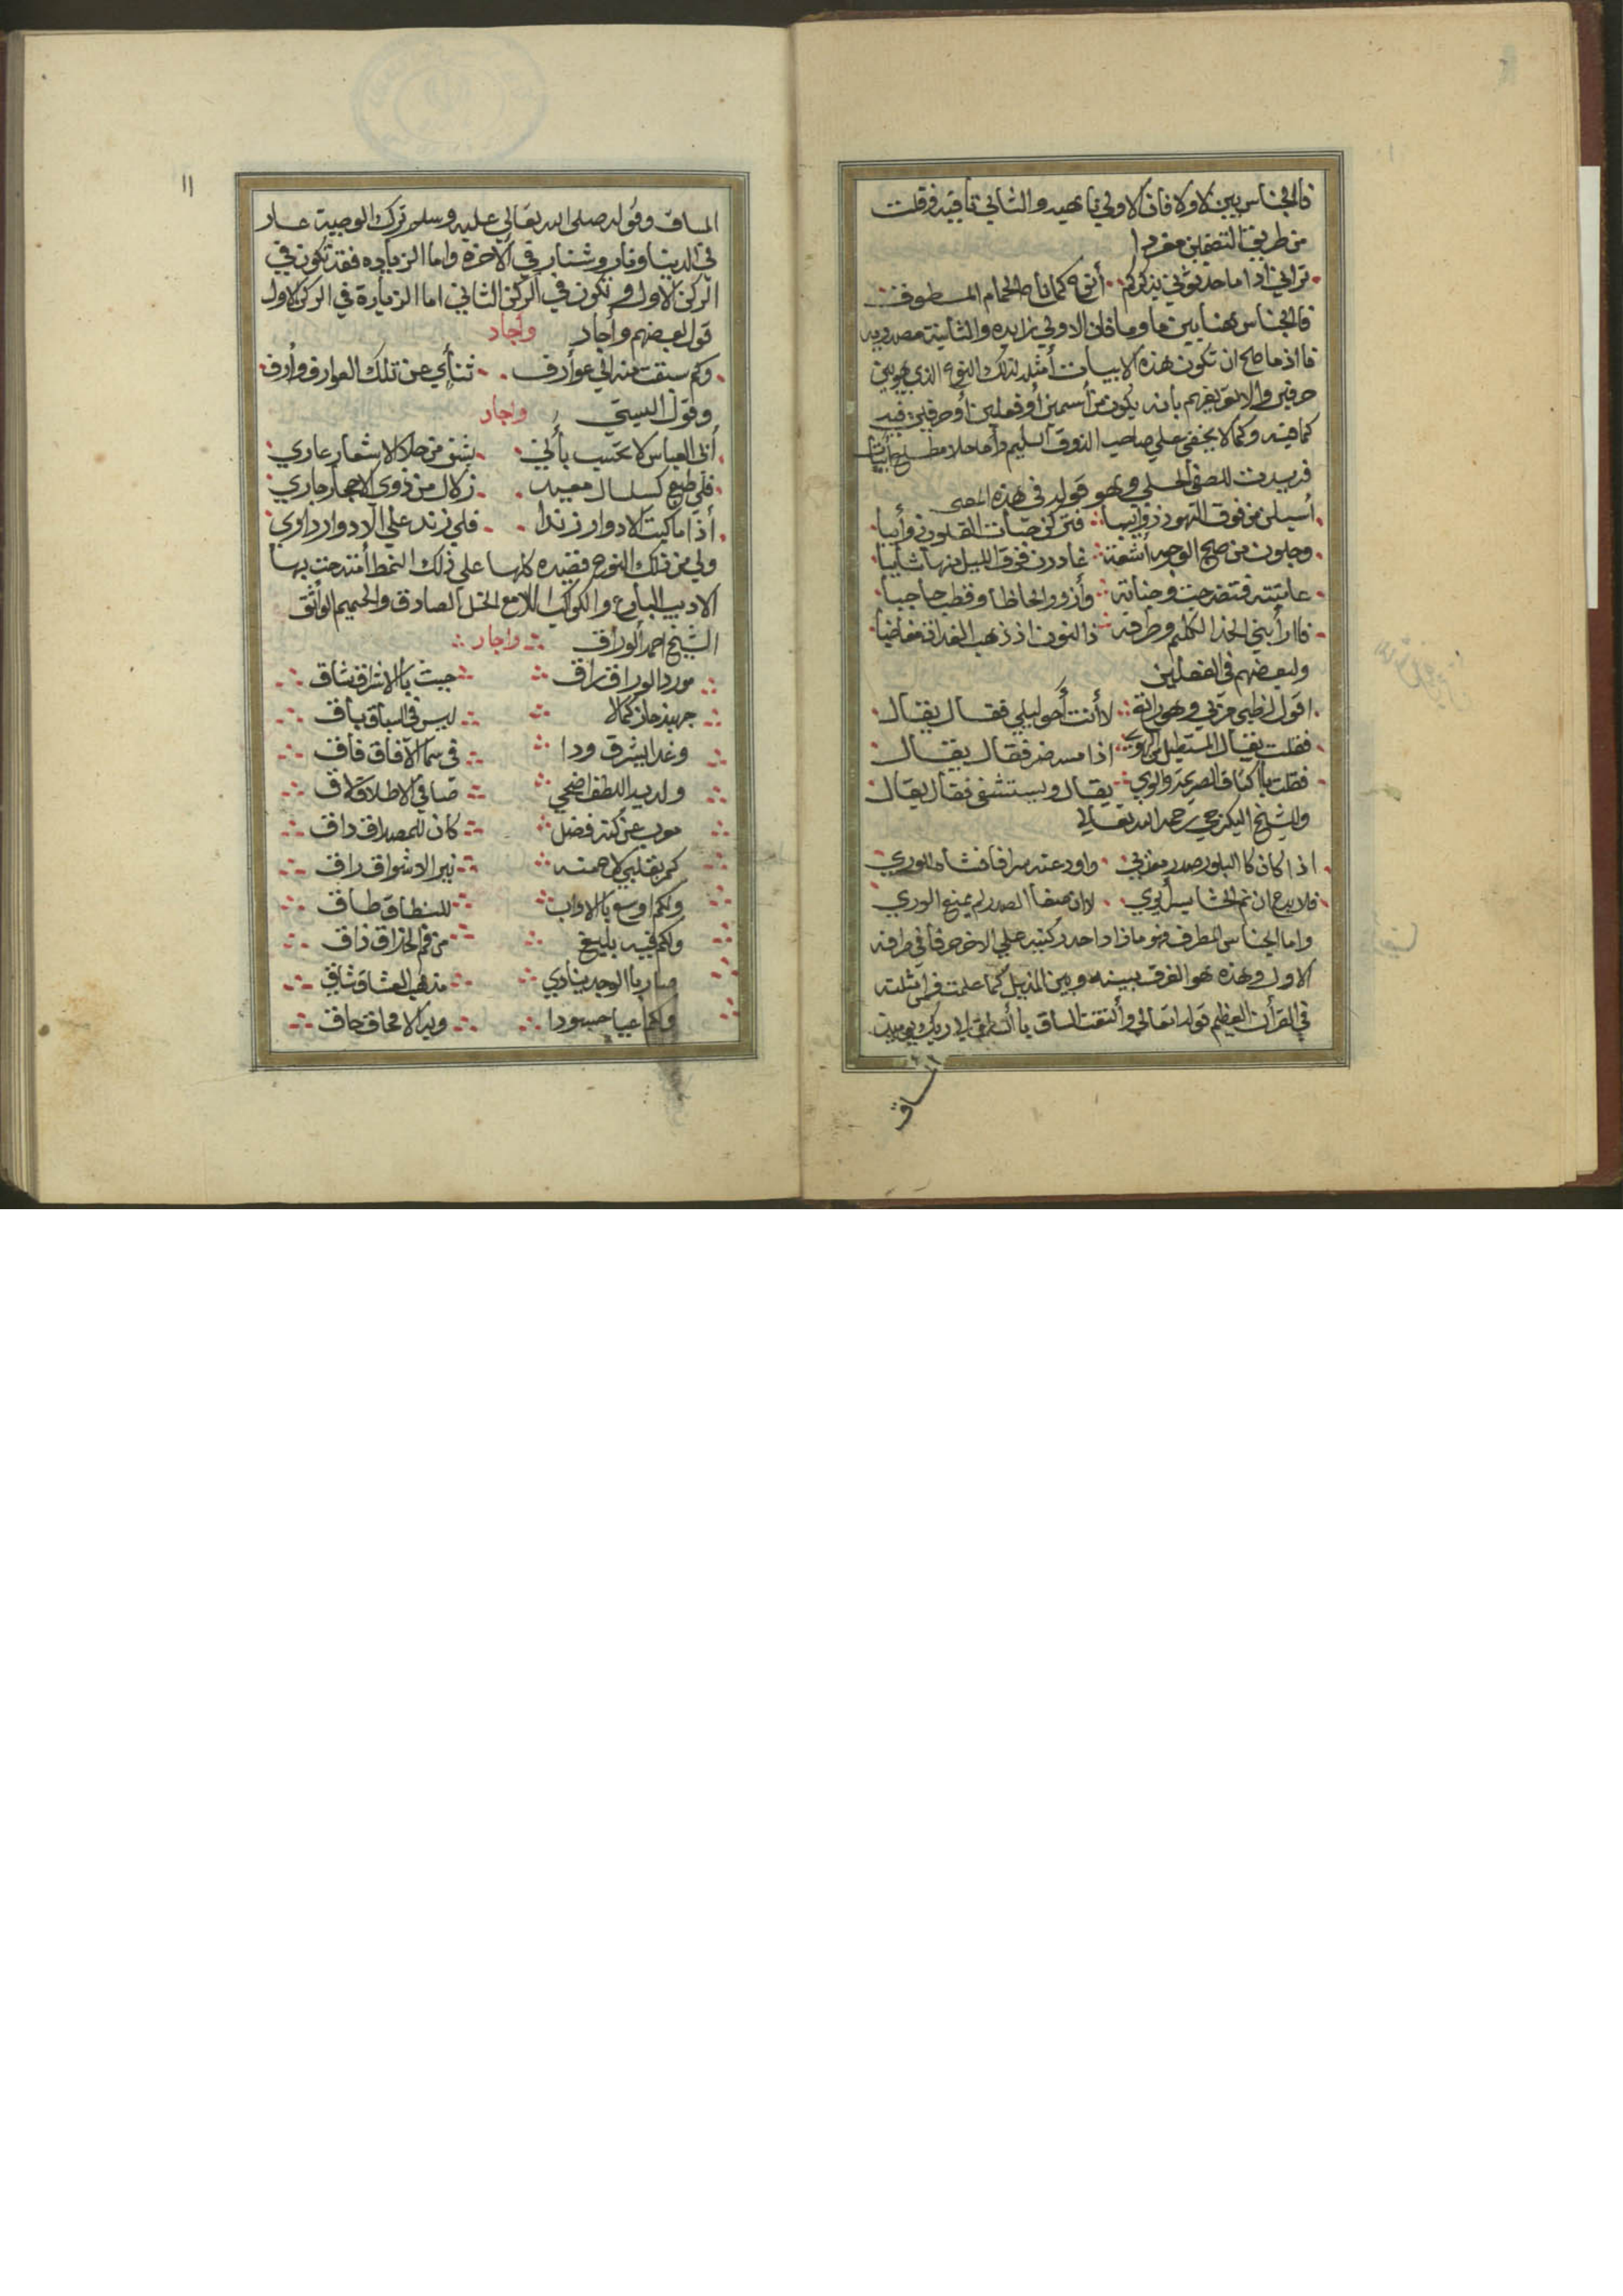 فالجناس بين لا ولا فان الاولي ناهيه والثاني نافيه وقلت
من طريق التضمين مفردا
تراني اذا ما حدثوني بذكركم أنوح كما ناح الحمام المطوف
فالجناس هنا بين ما وما فان الاولي زايده والثانية مصدريه
فااذ ما صلح ان تكون هذه الابيات أمثله لذلك النوع الذي هو بين
حرفين والا تو يفهم بانه يكون من أسمين أو فعلين أو حرفين فيه
كما فيه وكما لا يخفي علي صاحب الذوق السليم وما احلا مطلع أبيات
فريدت للصفي الحلي وهو قوله في هذه المعني
أسبلن من فوق النهود ذوايبا فتركن حبات القلوب ذوأيبا
وجلون من صبح الوجوه أشعة غادرن فود الليل منها شايبا
عاتبته فتضرجت وجناته وأزور الحاظا وقطب حاجبا
فاارأبني الخد الكليم وطرفه ذا النون اذ ذهب الغداة مغاضبا
ولبعضهم في الفعلين
اقول لظبي مر بي وهو راتع لاأنت أخو ليلي فقال يقال
فقلت يقال المستقيل من الهوي اذا مسه ضر فقال يقال
فقلت باكناف الصريمة والوي يقال ويستشفي فقال يقال
وللشيخ اليكرجي رحمه الله تعالي
اذا كان كا البلور صدر معذبي واودعته سرا فافشاه للوري
فلا بدع ان نم الحشا يس لوري لان صفا الصدر لم يمنع الوري
واما الجناس المطرف فهو ما زاد احد ركنيه علي الاخر حرفا في طرفه
الاول وهذه هو الفرق بينه وبين المذيل كما علمت فمن أمثلته
في القرأن العظيم قوله تعالي وألتفت الساق باالساق الي ربك يوميذ
المساق
١١
المساق وقوله صلي الله تعالي عليه وسلم ترك الوصية عار
في الدنيا ونار وشنار في الأخرة واما الزياده فقد تكون في
الركن الأول وتكون في الركن الثاني اما الزيارة في الركن الاول
قول بعضهم وأجاد وأجاد
وكم سبقت منه الي عوأرف ثنأي عن تلك العوارف وأرف
وقول البستي وأجاد
أبي العباس لا تحسب بأني بشئ من حلا الاشعار عاري
فلي طبع كسلسال معين زلال من ذوي الاحجار جاري
أذا ما كبت الادوار زندا فلي زند علي الادوار واري
ولي من ذلك النوع قصيده كلها علي ذلك النمط أمتدحت بها
الاديب البارع والكوكب اللامع الخل الصادق والحميم الواثق
الشيخ احمد ألوراق واجاد
مورد الوراق راق جيت باالاشراق شاق
جهبذ حاز كمالا ليس في السباق باق
وغدا يشرق ودا في سما الأفاق فاق
ولديه اللطف اضحي كان للمصداق داق
كم بقلبي لاح منه نير الاشواق راق
ولكم اوسع باالاداب للنطاق طاق
ولكم فيه بليغ من فم الحذاق ذاق
صار باالوجد ينادي مذهب العشاق شاق